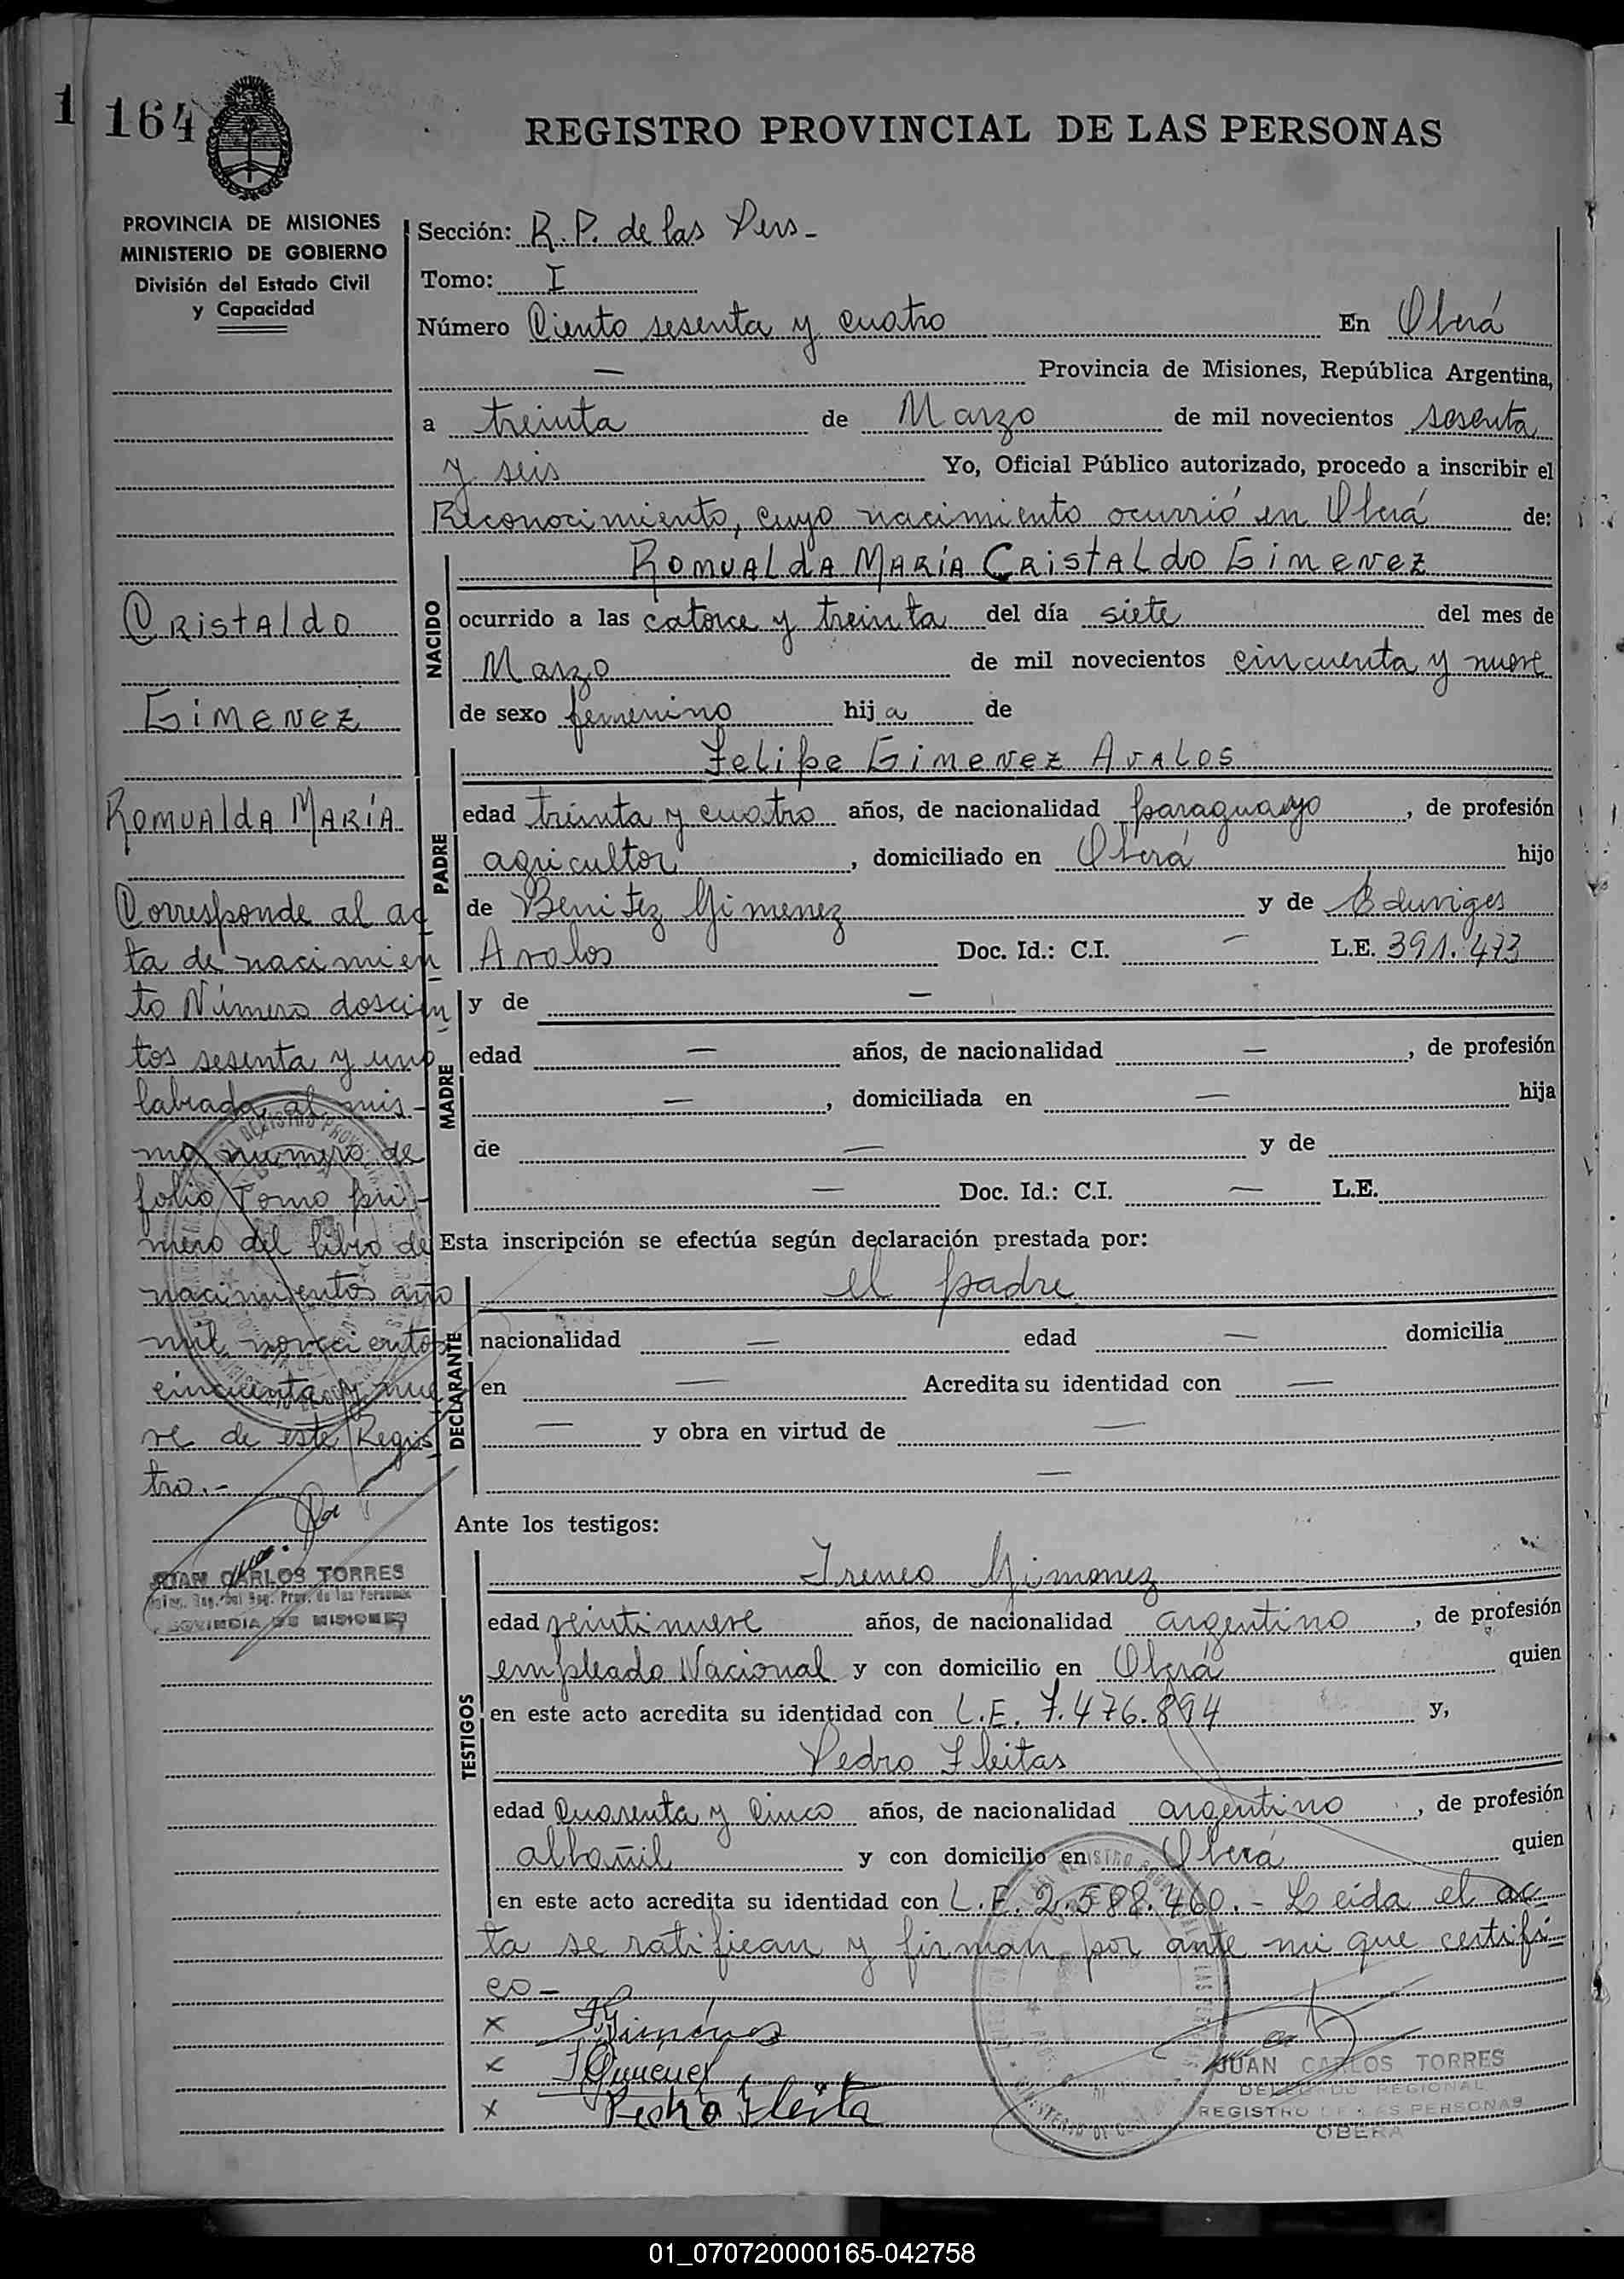 1 164
REGISTRO PROVINCIAL DE LAS PERSONAS
PROVINCIA DE MISIONES
MINISTERIO DE GOBIERNO
División del Estado Civil
y Capacidad
Cristaldo
Gimenez
Romualda María
Corresponde al ac
ta de nacimien
to Número doscien
tos sesenta y uno
labrada al mis-
mo número de
folio Tomo pri-
mero del libro de
nacimientos año
mil novecientos
cincuenta y nue
ve de este Regis
tro.-
JUAN CARLOS TORRES
PROVINCIA DE MISIONES
Sección: R.P. de las Pers-
Tomo: I
Número Ciento sesenta y cuatro En Oberá
— Provincia de Misiones, República Argentina,
a treinta de Marzo de mil novecientos sesenta
y seis Yo, Oficial Público autorizado, procedo a inscribir el
Reconocimiento, cuyo nacimiento ocurrió en Oberá de:
NACIDO
Romualda María Cristaldo Gimenez
ocurrido a las catorce y treinta del día siete del mes de
Marzo de mil novecientos cincuenta y nueve
de sexo femenino hija de
PADRE
Felipe Gimenez Avalos
edad treinta y cuatro años, de nacionalidad paraguayo, de profesión
agricultor, domiciliado en Oberá hijo
de Benitez Gimenez y de Eduviges
Avalos Doc. Id.: C.I. — L.E. 391.473
MADRE
y de —
edad — años, de nacionalidad —, de profesión
—, domiciliada en — hija
de — y de
— Doc. Id.: C.I. — L.E.
Esta inscripción se efectúa según declaración prestada por:
DECLARANTE
el padre
nacionalidad — edad — domicilia
en — Acredita su identidad con —
— y obra en virtud de —
—
Ante los testigos:
TESTIGOS
Ireneo Gimenez
edad veintinueve años, de nacionalidad argentino, de profesión
empleado Nacional y con domicilio en Oberá quien
en este acto acredita su identidad con L.E. 7.476.894 y,
Pedro Fleitas
edad Cuarenta y Cinco años, de nacionalidad argentino, de profesión
albañil y con domicilio en Oberá quien
en este acto acredita su identidad con L.E. 2.588.460.- Leida el ac
ta se ratifican y firman por ante mi que certifi-
co-
x
x
x Pedro Fleita
JUAN CARLOS TORRES
DELEGADO REGIONAL
REGISTRO DE LAS PERSONAS
OBERA
01_070720000165-042758